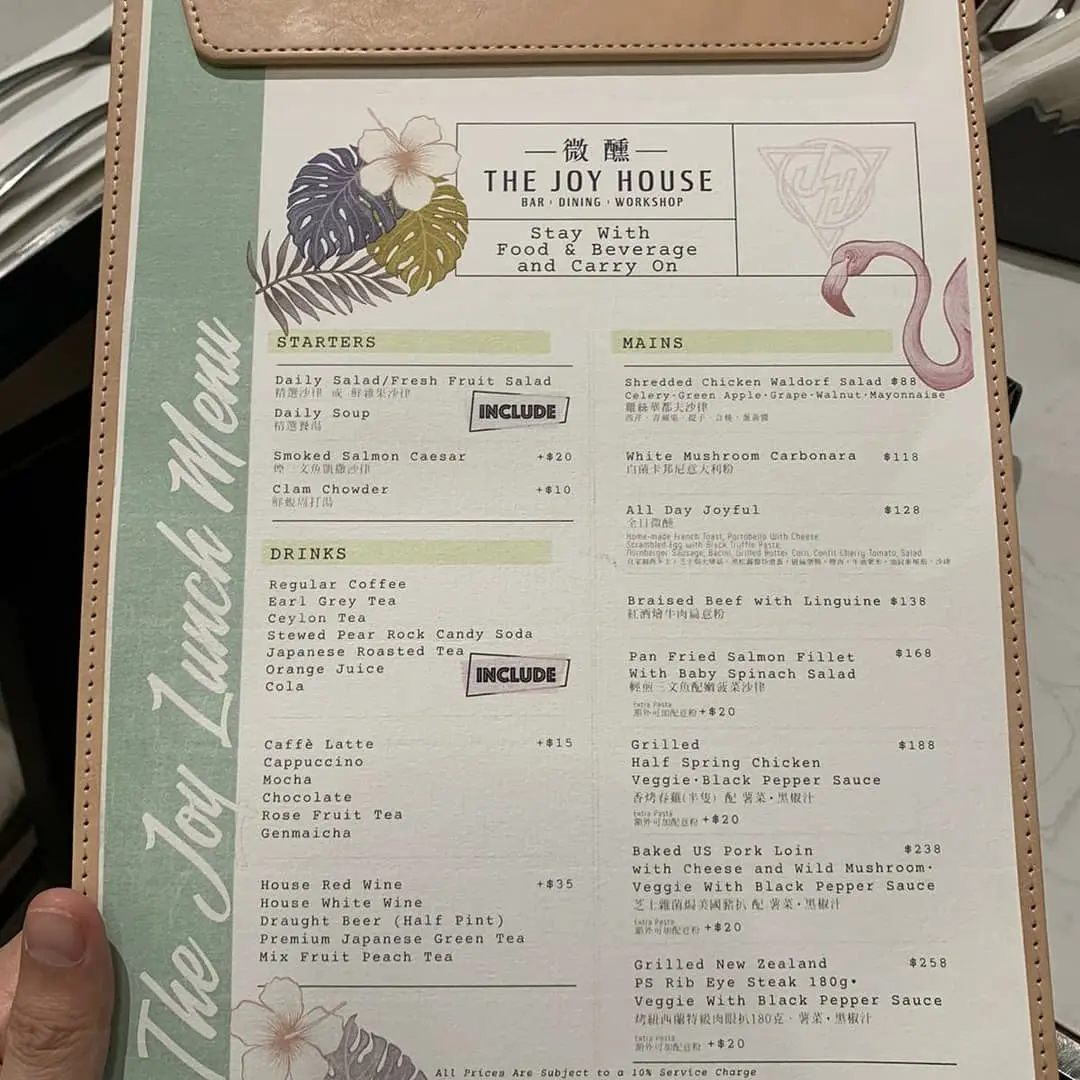 微醺
THE JOY HOUSE
BAR DINING WORKSHOP
Stay With
Food & Beverage
and Carry On
JH
The Joy Lunch Menu
STARTERS
Daily Salad/Fresh Fruit Salad
精選沙律 或 鮮雜果沙律
Daily Soup
精選餐湯
INCLUDE
Smoked Salmon Caesar +$20
煙三文魚凱撒沙律
Clam Chowder +$10
鮮蜆周打湯
DRINKS
Regular Coffee
Earl Grey Tea
Ceylon Tea
Stewed Pear Rock Candy Soda
Japanese Roasted Tea
Orange Juice
Cola
INCLUDE
Caffè Latte +$15
Cappuccino
Mocha
Chocolate
Rose Fruit Tea
Genmaicha
House Red Wine +$35
House White Wine
Draught Beer (Half Pint)
Premium Japanese Green Tea
Mix Fruit Peach Tea
MAINS
Shredded Chicken Waldorf Salad $88
Celery·Green Apple·Grape·Walnut·Mayonnaise
雞絲華都夫沙律
White Mushroom Carbonara $118
白菌卡邦尼意大利粉
All Day Joyful $128
全日微醺
Home-made French Toast, Portobello With Cheese
Scrambled Egg with Black Truffle Paste,
Nürnberger Sausage, Bacon, Grilled Butter Corn, Confit Cherry Tomato, Salad
Braised Beef with Linguine $138
紅酒燴牛肉扁意粉
Pan Fried Salmon Fillet $168
With Baby Spinach Salad
輕煎三文魚配嫩菠菜沙律
Extra Pasta
額外可加配意粉 +$20
Grilled $188
Half Spring Chicken
Veggie·Black Pepper Sauce
香烤春雞(半隻) 配 薯菜·黑椒汁
Extra Pasta
額外可加配意粉 +$20
Baked US Pork Loin $238
with Cheese and Wild Mushroom·
Veggie With Black Pepper Sauce
芝士雜菌焗美國豬扒 配 薯菜·黑椒汁
Extra Pasta
額外可加配意粉 +$20
Grilled New Zealand $258
PS Rib Eye Steak 180g·
Veggie With Black Pepper Sauce
烤紐西蘭特級肉眼扒180克·薯菜·黑椒汁
Extra Pasta
額外可加配意粉 +$20
All Prices Are Subject to a 10% Service Charge